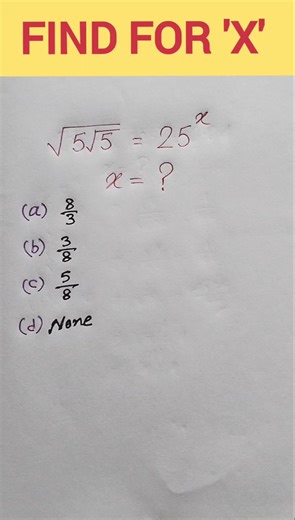 FIND FOR 'X'
√(5√5) = 25^x
x = ?
(a) 8/3
(b) 3/8
(c) 5/8
(d) None